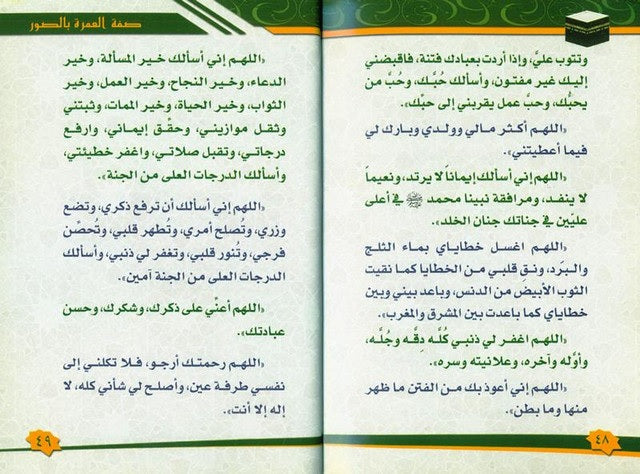 وتتوب عليَّ، وإذا أردت بعبادك فتنة، فاقبضني
إليك غير مفتون، وأسألك حُبَّك، وحُبَّ من
يحبُّك، وحبَّ عمل يقربني إلى حبِّك».
«اللهم أكثر مالي وولدي وبارك لي
فيما أعطيتني».
«اللهم إني أسألك إيماناً لا يرتد، ونعيماً
لا ينفد، ومرافقة نبينا محمد ﷺ في أعلى
علِّيين في جناتك جنان الخلد».
«اللهم اغسل خطاياي بماء الثلج
والبَرد، ونق قلبي من الخطايا كما نقيت
الثوب الأبيض من الدنس، وباعد بيني وبين
خطاياي كما باعدت بين المشرق والمغرب».
«اللهم اغفر لي ذنبي كُلَّه دِقَّه وجُلَّه،
وأوَّله وآخره، وعلانيته وسره».
«اللهم إني أعوذ بك من الفتن ما ظهر
منها وما بطن».
٤٨
صفة العمرة بالصور
«اللهم إني أسألك خير المسألة، وخير
الدعاء، وخير النجاح، وخير العمل، وخير
الثواب، وخير الحياة، وخير الممات، وثبتني
وثقل موازيني، وحقِّق إيماني، وارفع
درجاتي، وتقبل صلاتي، واغفر خطيئتي،
وأسألك الدرجات العلى من الجنة».
«اللهم إني أسألك أن ترفع ذكري، وتضع
وزري، وتصلح أمري، وتُطهر قلبي، وتُحصِّن
فرجي، وتُنور قلبي، وتغفر لي ذنبي، وأسألك
الدرجات العلى من الجنة آمين».
«اللهم أعنِّي على ذكرك، وشكرك، وحسن
عبادتك».
«اللهم رحمتك أرجو، فلا تكلني إلى
نفسي طرفة عين، وأصلح لي شأني كله، لا
إله إلا أنت».
٤٩